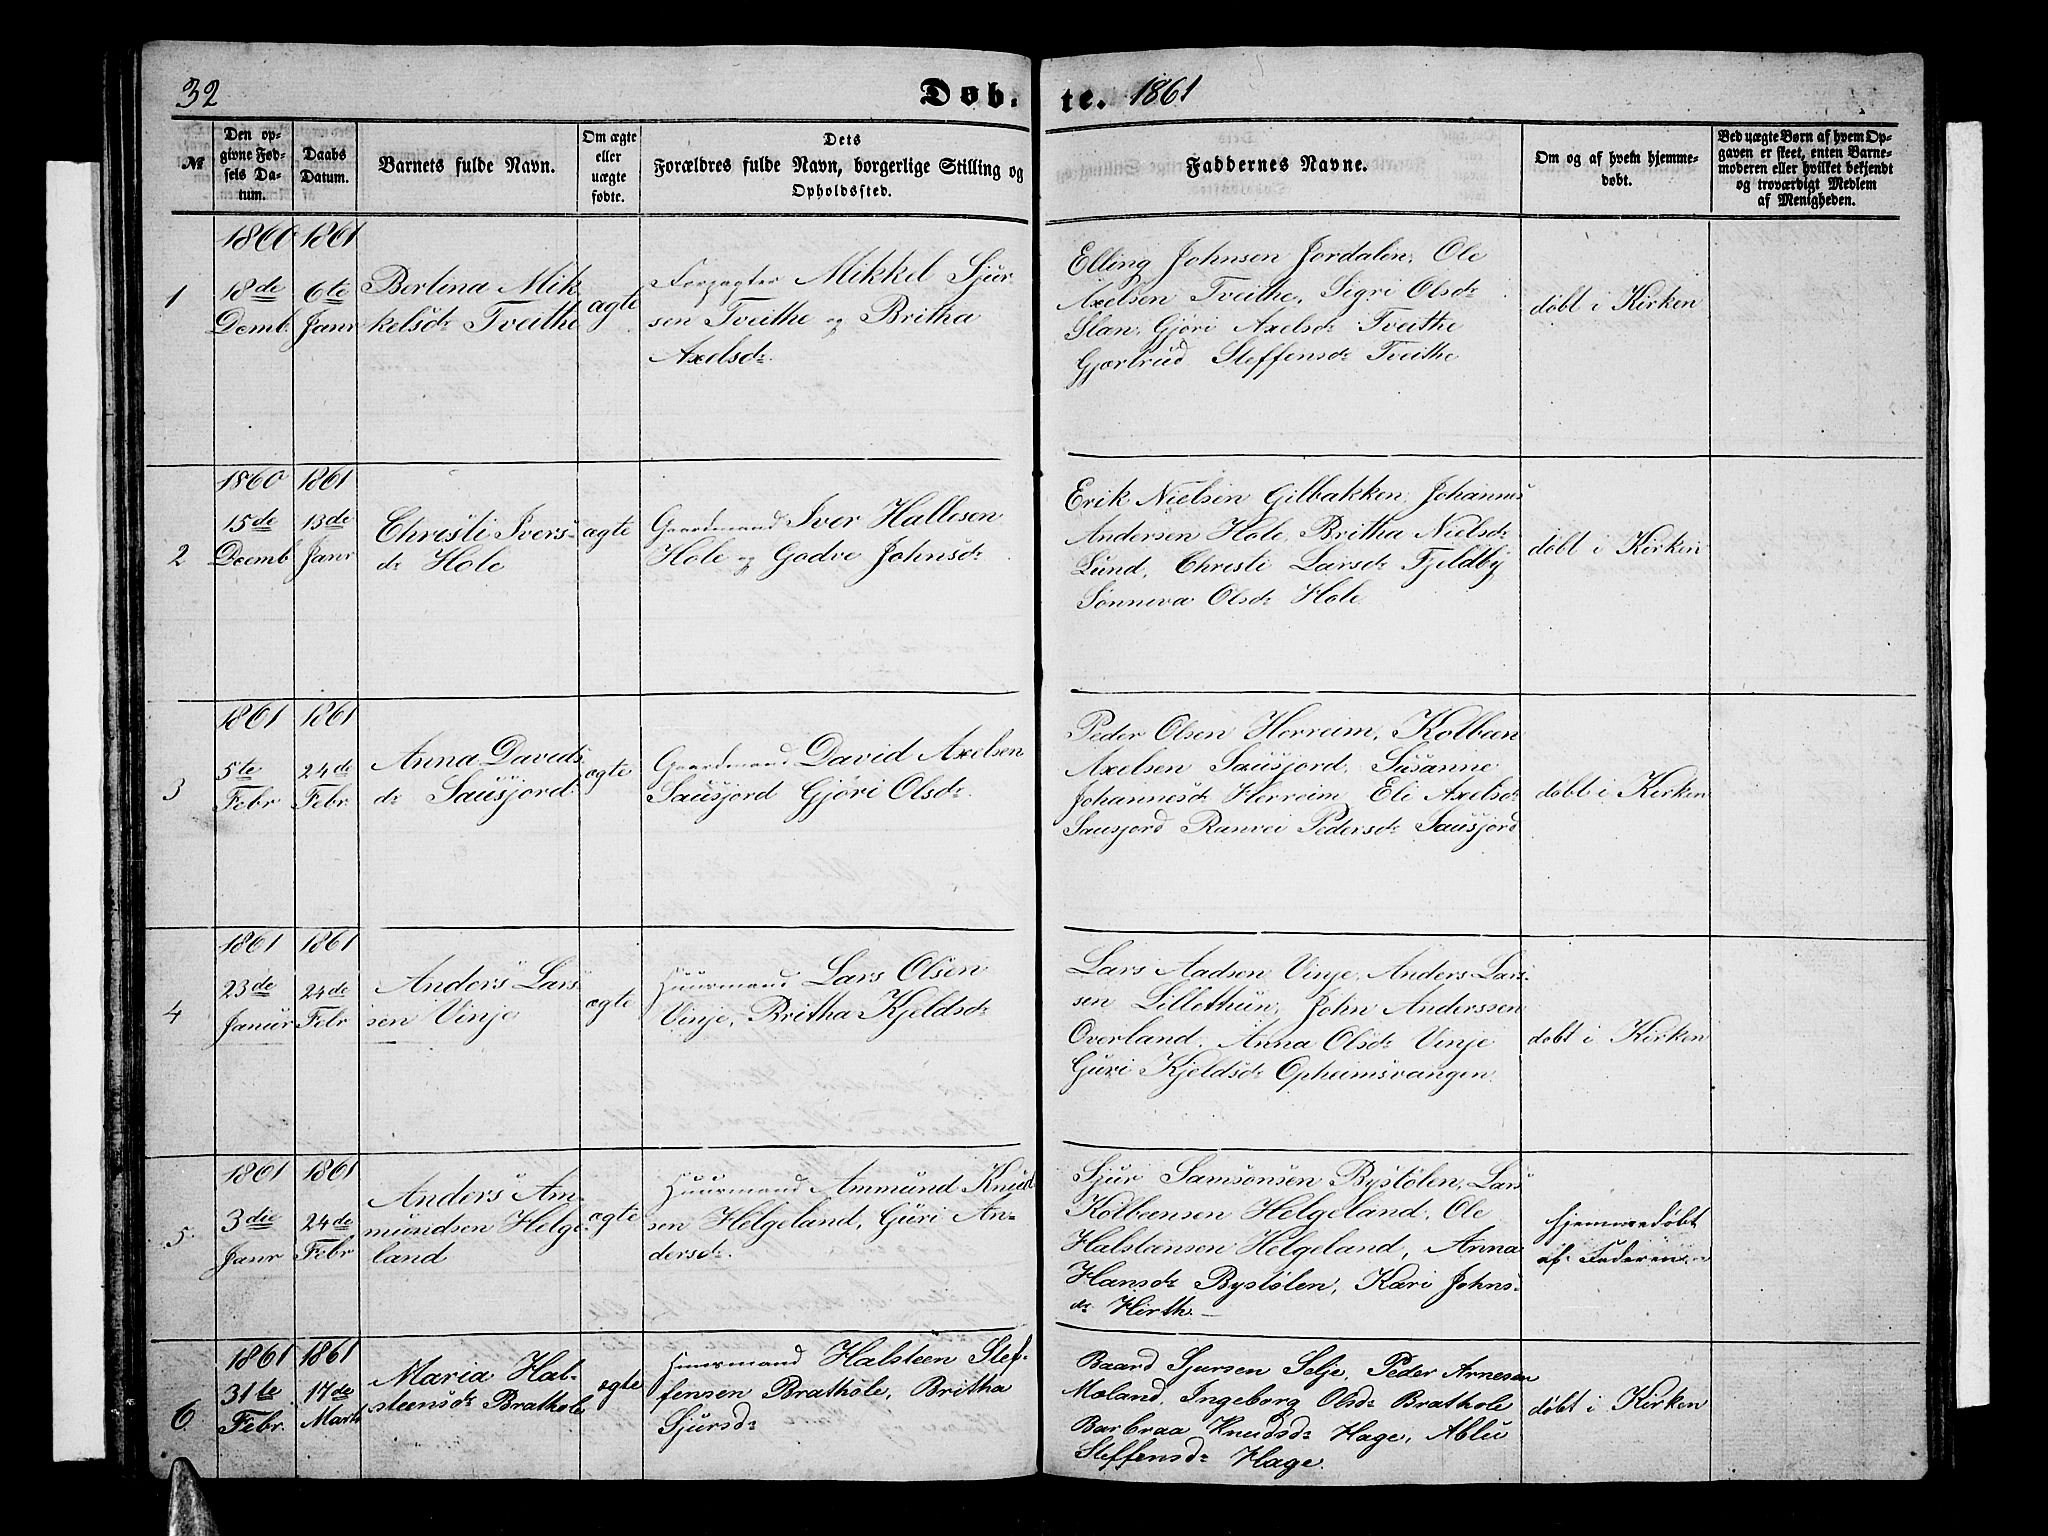 32
Døb-
te. 1861
№
Den op-
givne Fød-
sels Da-
tum.
Daabs
Datum.
Barnets fulde Navn.
Om ægte
eller
uægte
fødte.
Dets
Forældres fulde Navn, borgerlige Stilling og
Opholdssted.
Faddernes Navne.
Om og af hvem hjemme-
døbt.
Ved uægte Børn af hvem Op-
gaven er skeet, enten Barne-
moderen eller hvilket bekjendt
og troværdigt Medlem
af Menigheden.
1
1860
18de
Decmb.
1861
6te
Janr
Berlina Mik-
kelsdr Tveithe
ægte
Forpagter Mikkel Sjur-
sen Tveithe og Britha
Axelsdr.
Elling Johnsen Jordalen, Ole
Axelsen Tveithe, Sigri Olsdr
Slæn, Gjøri Axelsdr Tveithe
Gjertrud Steffensdr Tveithe
døbt i Kirken
2
1860
15de
Decemb
1861
13de
Janr
Christi Ivers-
dr Hole
ægte
Gaardmand Iver Hallesen
Hole og Godve Johnsdr
Erik Nielsen Gilbakken, Johannes
Andersen Hole, Britha Nielsdr
Lund, Christi Larsdr Fjeldby
Sønneva Olsdr Hole
døbt i Kirken
3
1861
5te
Febr
1861
24de
Febr
Anna Davids-
dr Sausjord
ægte
Gaardmand David Axelsen
Sausjord Gjøri Olsdr
Peder Olsen Herreim, Kolben
Axelsen Sausjord, Susanne
Johannesdr Herreim Eli Axelsdr
Sausjord Ranvei Pedersdr Sausjord
døbt i Kirken
4
1861
23de
Janur
1861
24de
Febr
Anders Lars-
sen Vinje
ægte
Huusmand Lars Olsen
Vinje, Britha Kjeldsdr
Lars Aadsen Vinje, Anders Lars-
sen Lillethun, John Anderssen
Overland, Anna Olsdr Vinje
Guri Kjeldsdr Opheimsvangen
døbt i Kirken
5
1861
3die
Janr
1861
24de
Febr
Anders Am-
mundsen Helge-
land
ægte
Huusmand Ammund Knud-
sen Helgeland, Guri An-
dersdr.
Sjur Samsonsen Bystølen, Lars
Kolbensen Helgeland, Ole
Halstensen Helgeland, Anna
Hansdr Bystølen, Kari Johns-
dr Hirth.
hjemmedøbt
af Faderen
6
1861
31te
Febr.
1861
17de
Marts
Maria Hal-
steensdr Brathole
ægte
Huusmand Halsteen Stef-
fensen Brathole, Britha
Sjursdr
Baard Sjursen Selje, Peder Arnesen
Moland, Ingeborg Olsdr Brathole
Barbraa Knudsdr Hage,
Steffensdr Hage.
døbt i Kirken